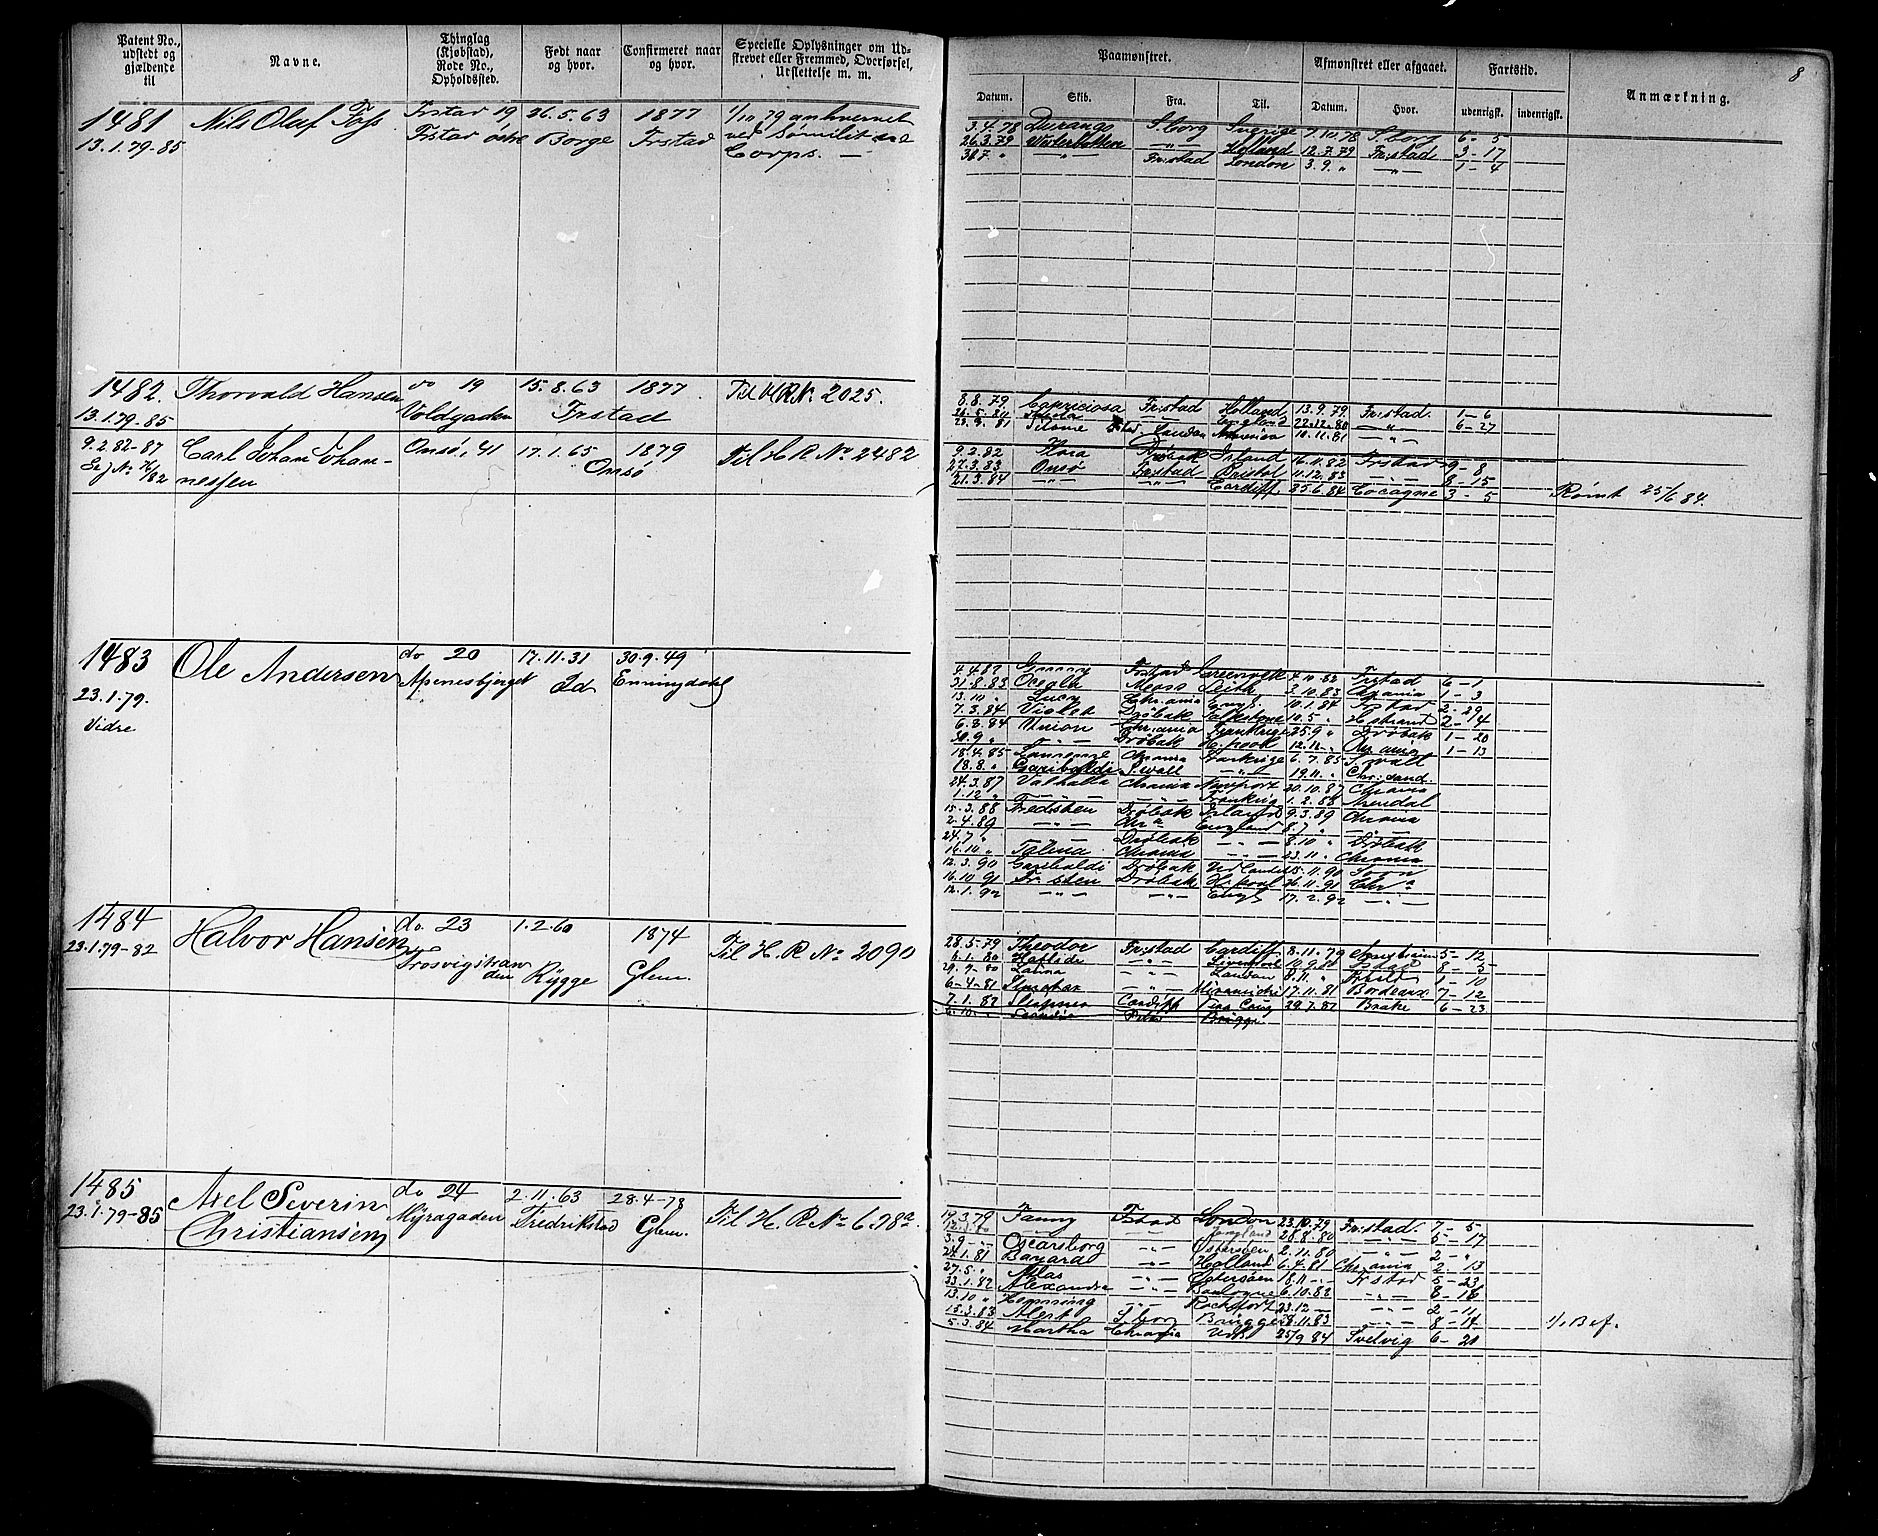 Patent No., udstedt og gjældende til
Navne.
Thinglag (Kjøbstad), Rode No., Opholdssted.
Født naar og hvor.
Confirmeret naar og hvor.
Specielle Oplysninger om Udskrevet eller Fremmed, Overførsel, Udslettelse m. m.
1481 Nils Olaf Foss Frstad 19 26.5.63 1877 1/10 79 anhvervet
13.1.79-85 Frstad Borge Frstad ved
Corps. —
1482. Thorvald Hansen do 19 15.8.63 1877. Til H.R.N. 2025.
13.1.79-85 Voldgaden Frstad
9.2.82-87 Carl Johan Johan- Onsø, 41 17.1.65 1879 Til H R No 2482
nessen Onsø
1483 Ole Andersen do 20 17.11.31 30.9.49
23.1.79. Apenesbjerget Id Enningdalen
Vidre
1484 Halvor Hansen do. 23 1.2.60 1874 Til H. R No 2090
23.1.79-82 Rygge Glem.
1485 Axel Severin do 24 2.11.63 28.4-78 Til H. R No 698a.
23.1.79-85 Christiansen Myragaden Fredrikstad Glem.
8
Paamønstret.
Afmønstret eller afgaaet.
Fartstid.
Anmærkning.
Datum. Skib. Fra. Til. Datum. Hvor. udenrigsk. indenrigsk.
3.4.78 Durango S.borg Sverige 7.10.78 S.borg 6 - 5
26.3.79 Westerbotten —"— Holland 12.7.79 Fr.stad 3 - 17
" —"— Fr.stad London 3.9. " —"— 1 - 4
8.8.79 Capriciosa Fr.stad Holland 13.9.79. Fr.stad. 1 - 6
England 22.12.80 —"— 6 - 27
London America 10.11.81 —"—
9.2.82 Flora Drøbak Irland 16.11.82 Frstad 9 - 8
27.3.83 Onsø Fr.stad Bristol 11.12.83 —"— 8 - 15
21.3.84 —"— —"— Cardiff. 25.6.84 Cocagne 3 - 5 Rømt 25/6 84.
4.4.82 Frstad Frstad 6 - 1
21.8.83 Oceola Moss Leith 2.10.83 Chrania 1 - 3
13.10 " Lucy Chr.ania Eng. 10.1.84 Frstad 2 - 29
7.3.84 Violet Drøbak 10.5 " H.strand 2 - 14
6.8.84 Union Chr.ania Frankrige 25.9 " Drøbak 1 - 20
30.9 " —"— Drøbak H.pool 12.11 " Chr.ania 1 - 13
18.4.85 Chrania Frankrige 6.7.85
18.8. " Garibaldi —"— 19.11. " Chr.sand.
24.3.87 Valhalla Chrania Newport 20.10.87 Chrania
1.12 " —"— —"— Frankrig 1.2.88 Arendal
15.3.88 Fredsten Drøbak Irland 9.3.89 Chrania
2.4.89 —"— Chr a England 8.7 " —"—
24.7 " Drøbak —"— 8.10 " Drøbak
14.10 " Chrania —"— 23.11 " Chrania
12.3.90 Garibaldi Drøbak 15.11.90 Soon
16.10.91 Fr.sten Drøbak H.pool 26.11.91 Chr a
12.1.92 —"— —"— Engl 17.2.92 —"—
28.5.79 Theodor Fr.stad Cardiff 8.11.79 5 - 12
6.1.80 Hafslide —"— Liverpool 10.9.80 8 - 5
—"— London 8.11. " 1 - 10
6-4-81 —"— Miramichi 17.11.81 Bordeaux 7 - 12
7.1.82 Sleipner Cardiff Vera Cruz 29.7.82 Brake 6 - 23
6.10. " Brügge
Fanny Fstad London 23.10.79 Fr.stad. 7 - 5
England 28.8.80 —"— 5 - 17
3.9. " Oscarsborg —"— Østersøen 2.11.80 —"— 2 - "
24.1.81 Bayard —"— Holland 6.4.81 Chr.ania 2 - 13
27.5. " Atlas —"— Østersøen 18.11 - Fr.stad 5 - 23
23.1.82 Alexandra —"— Boulogne 6.10.82 —"— 8 - 18
13.10 " Henning —"— Rochfort 23.12 — —"— 2 - 11
15.3.83 Alert S.borg Brügge 28.11.83 —"— 8 - 14
5.3.84 Martha Chrania 25/9 84 Svelvig 6 - 21 1/1 Bef.